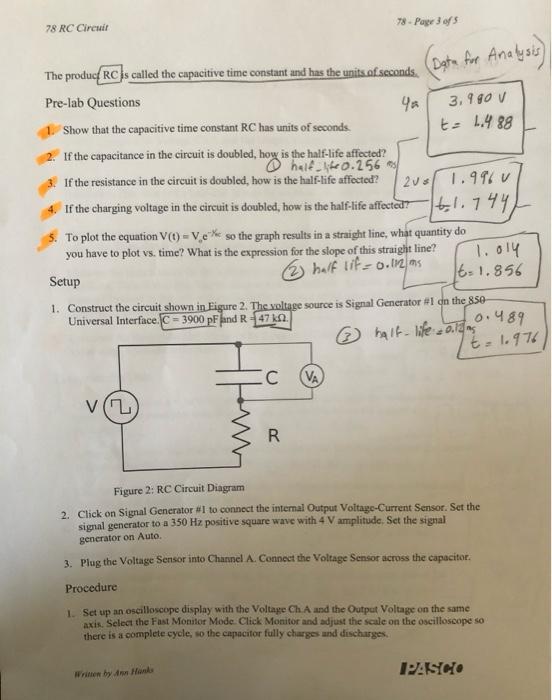 78 RC Circuit
78 - Page 3 of 5
(Data for Analysis)
The product RC is called the capacitive time constant and has the units of seconds.
Pre-lab Questions
3.980 V
t = 1.488
1. Show that the capacitive time constant RC has units of seconds.
2. If the capacitance in the circuit is doubled, how is the half-life affected?
① half-life 0.256 ms
3. If the resistance in the circuit is doubled, how is the half-life affected?
1.996 V
t=1.744
4. If the charging voltage in the circuit is doubled, how is the half-life affected?
5. To plot the equation V(t) = Vₒe^(-t/RC) so the graph results in a straight line, what quantity do
you have to plot vs. time? What is the expression for the slope of this straight line?
② half lif = 0.112 ms
1.014
t = 1.856
Setup
1. Construct the circuit shown in Figure 2. The voltage source is Signal Generator #1 on the 850
Universal Interface. C = 3900 pF and R = 47 kΩ.
③ half-life = 0.12 ms
0.489
t = 1.976
C
VA
V
R
Figure 2: RC Circuit Diagram
2. Click on Signal Generator #1 to connect the internal Output Voltage-Current Sensor. Set the
signal generator to a 350 Hz positive square wave with 4 V amplitude. Set the signal
generator on Auto.
3. Plug the Voltage Sensor into Channel A. Connect the Voltage Sensor across the capacitor.
Procedure
1. Set up an oscilloscope display with the Voltage Ch.A and the Output Voltage on the same
axis. Select the Fast Monitor Mode. Click Monitor and adjust the scale on the oscilloscope so
there is a complete cycle, so the capacitor fully charges and discharges.
Written by Ann Hanks
PASCO